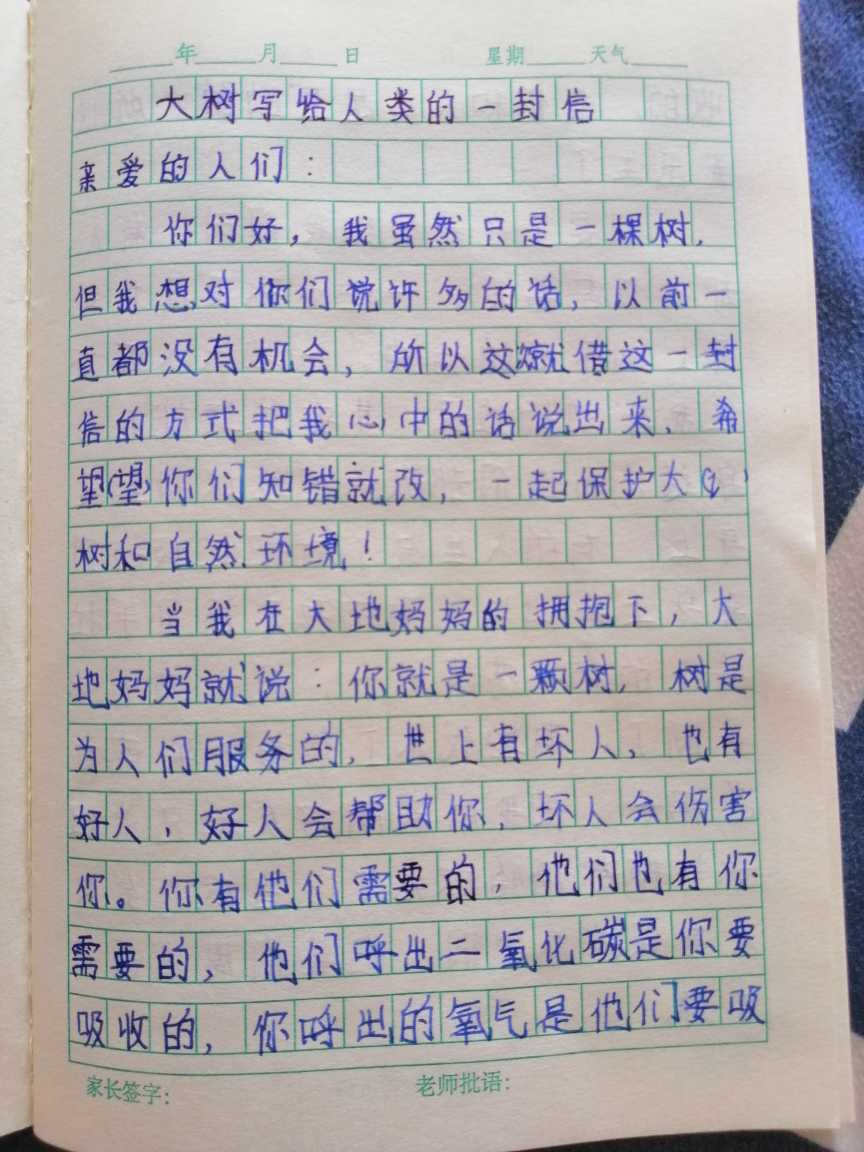 年 月 日 星期 天气
大树写给人类的一封信
亲爱的人们：
你们好，我虽然只是一棵树，
但我想对你们说许多的话，以前一
直都没有机会，所以这次就借这一封
信的方式把我心中的话说出来，希
望(望)你们知错就改，一起保护大
树和自然环境！
当我在大地妈妈的拥抱下，大
地妈妈就说：你就是一颗树，树是
为人们服务的，世上有坏人，也有
好人，好人会帮助你，坏人会伤害
你。你有他们需要的，他们也有你
需要的，他们呼出二氧化碳是你要
吸收的，你呼出的氧气是他们要吸
家长签字： 老师批语：